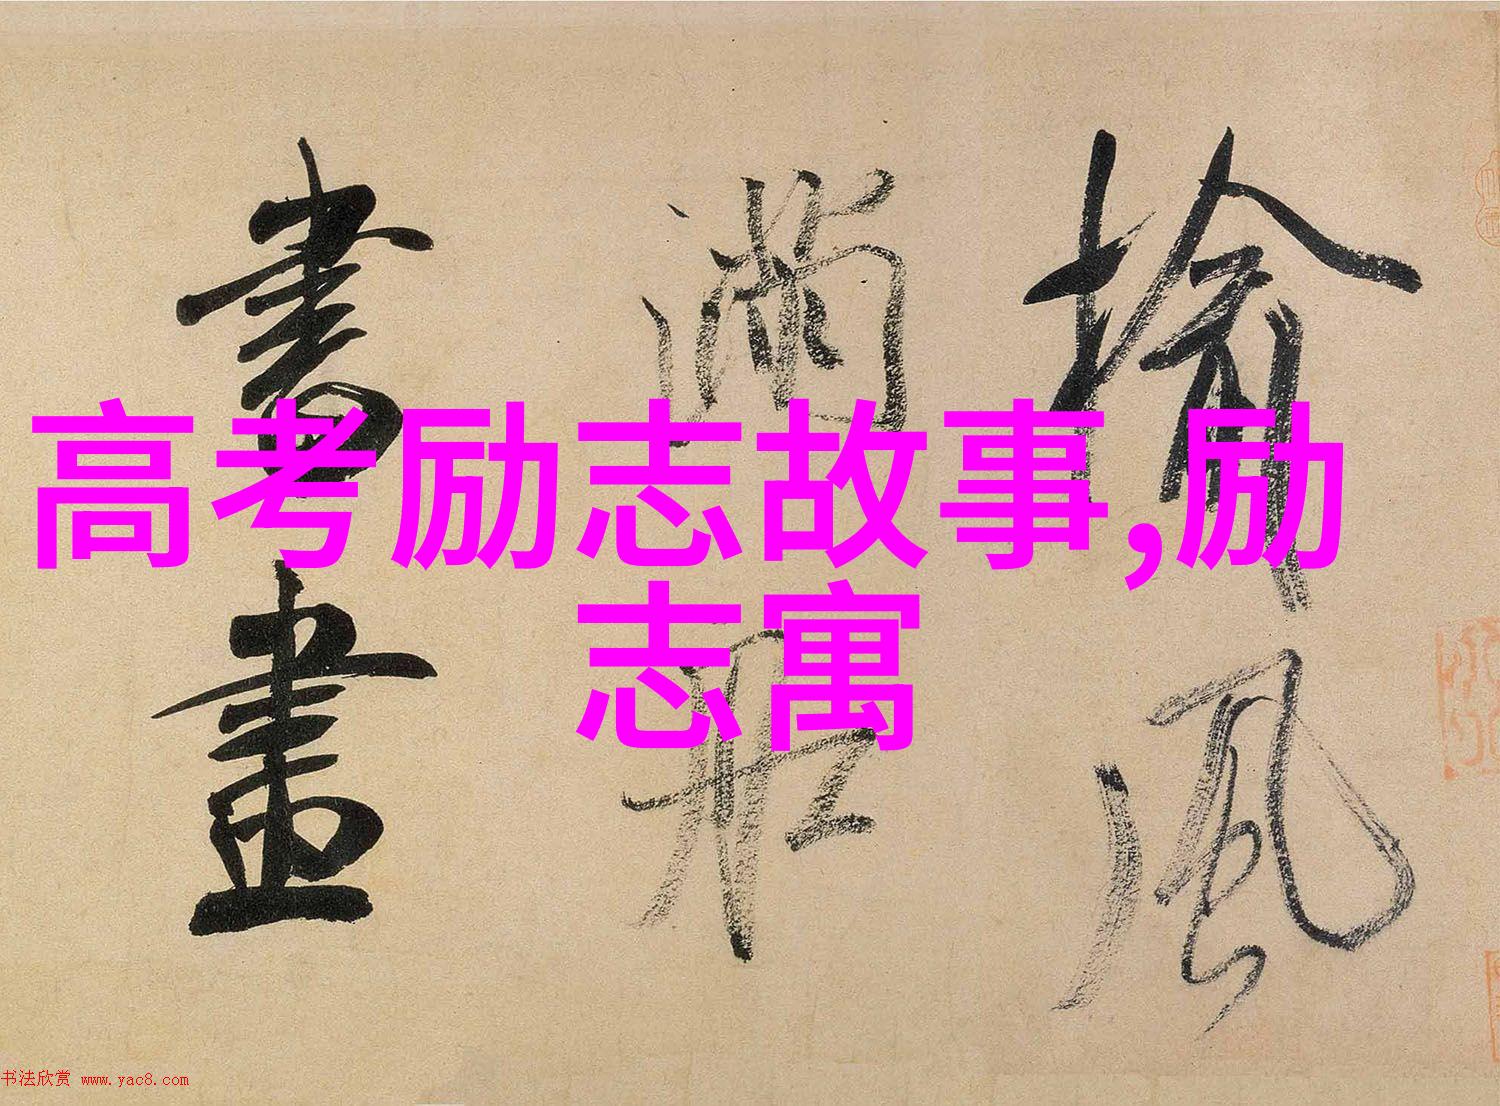 高考励志故事,励
志寓
榆風
滿船
書畫
书法欣赏 www.yac8.com